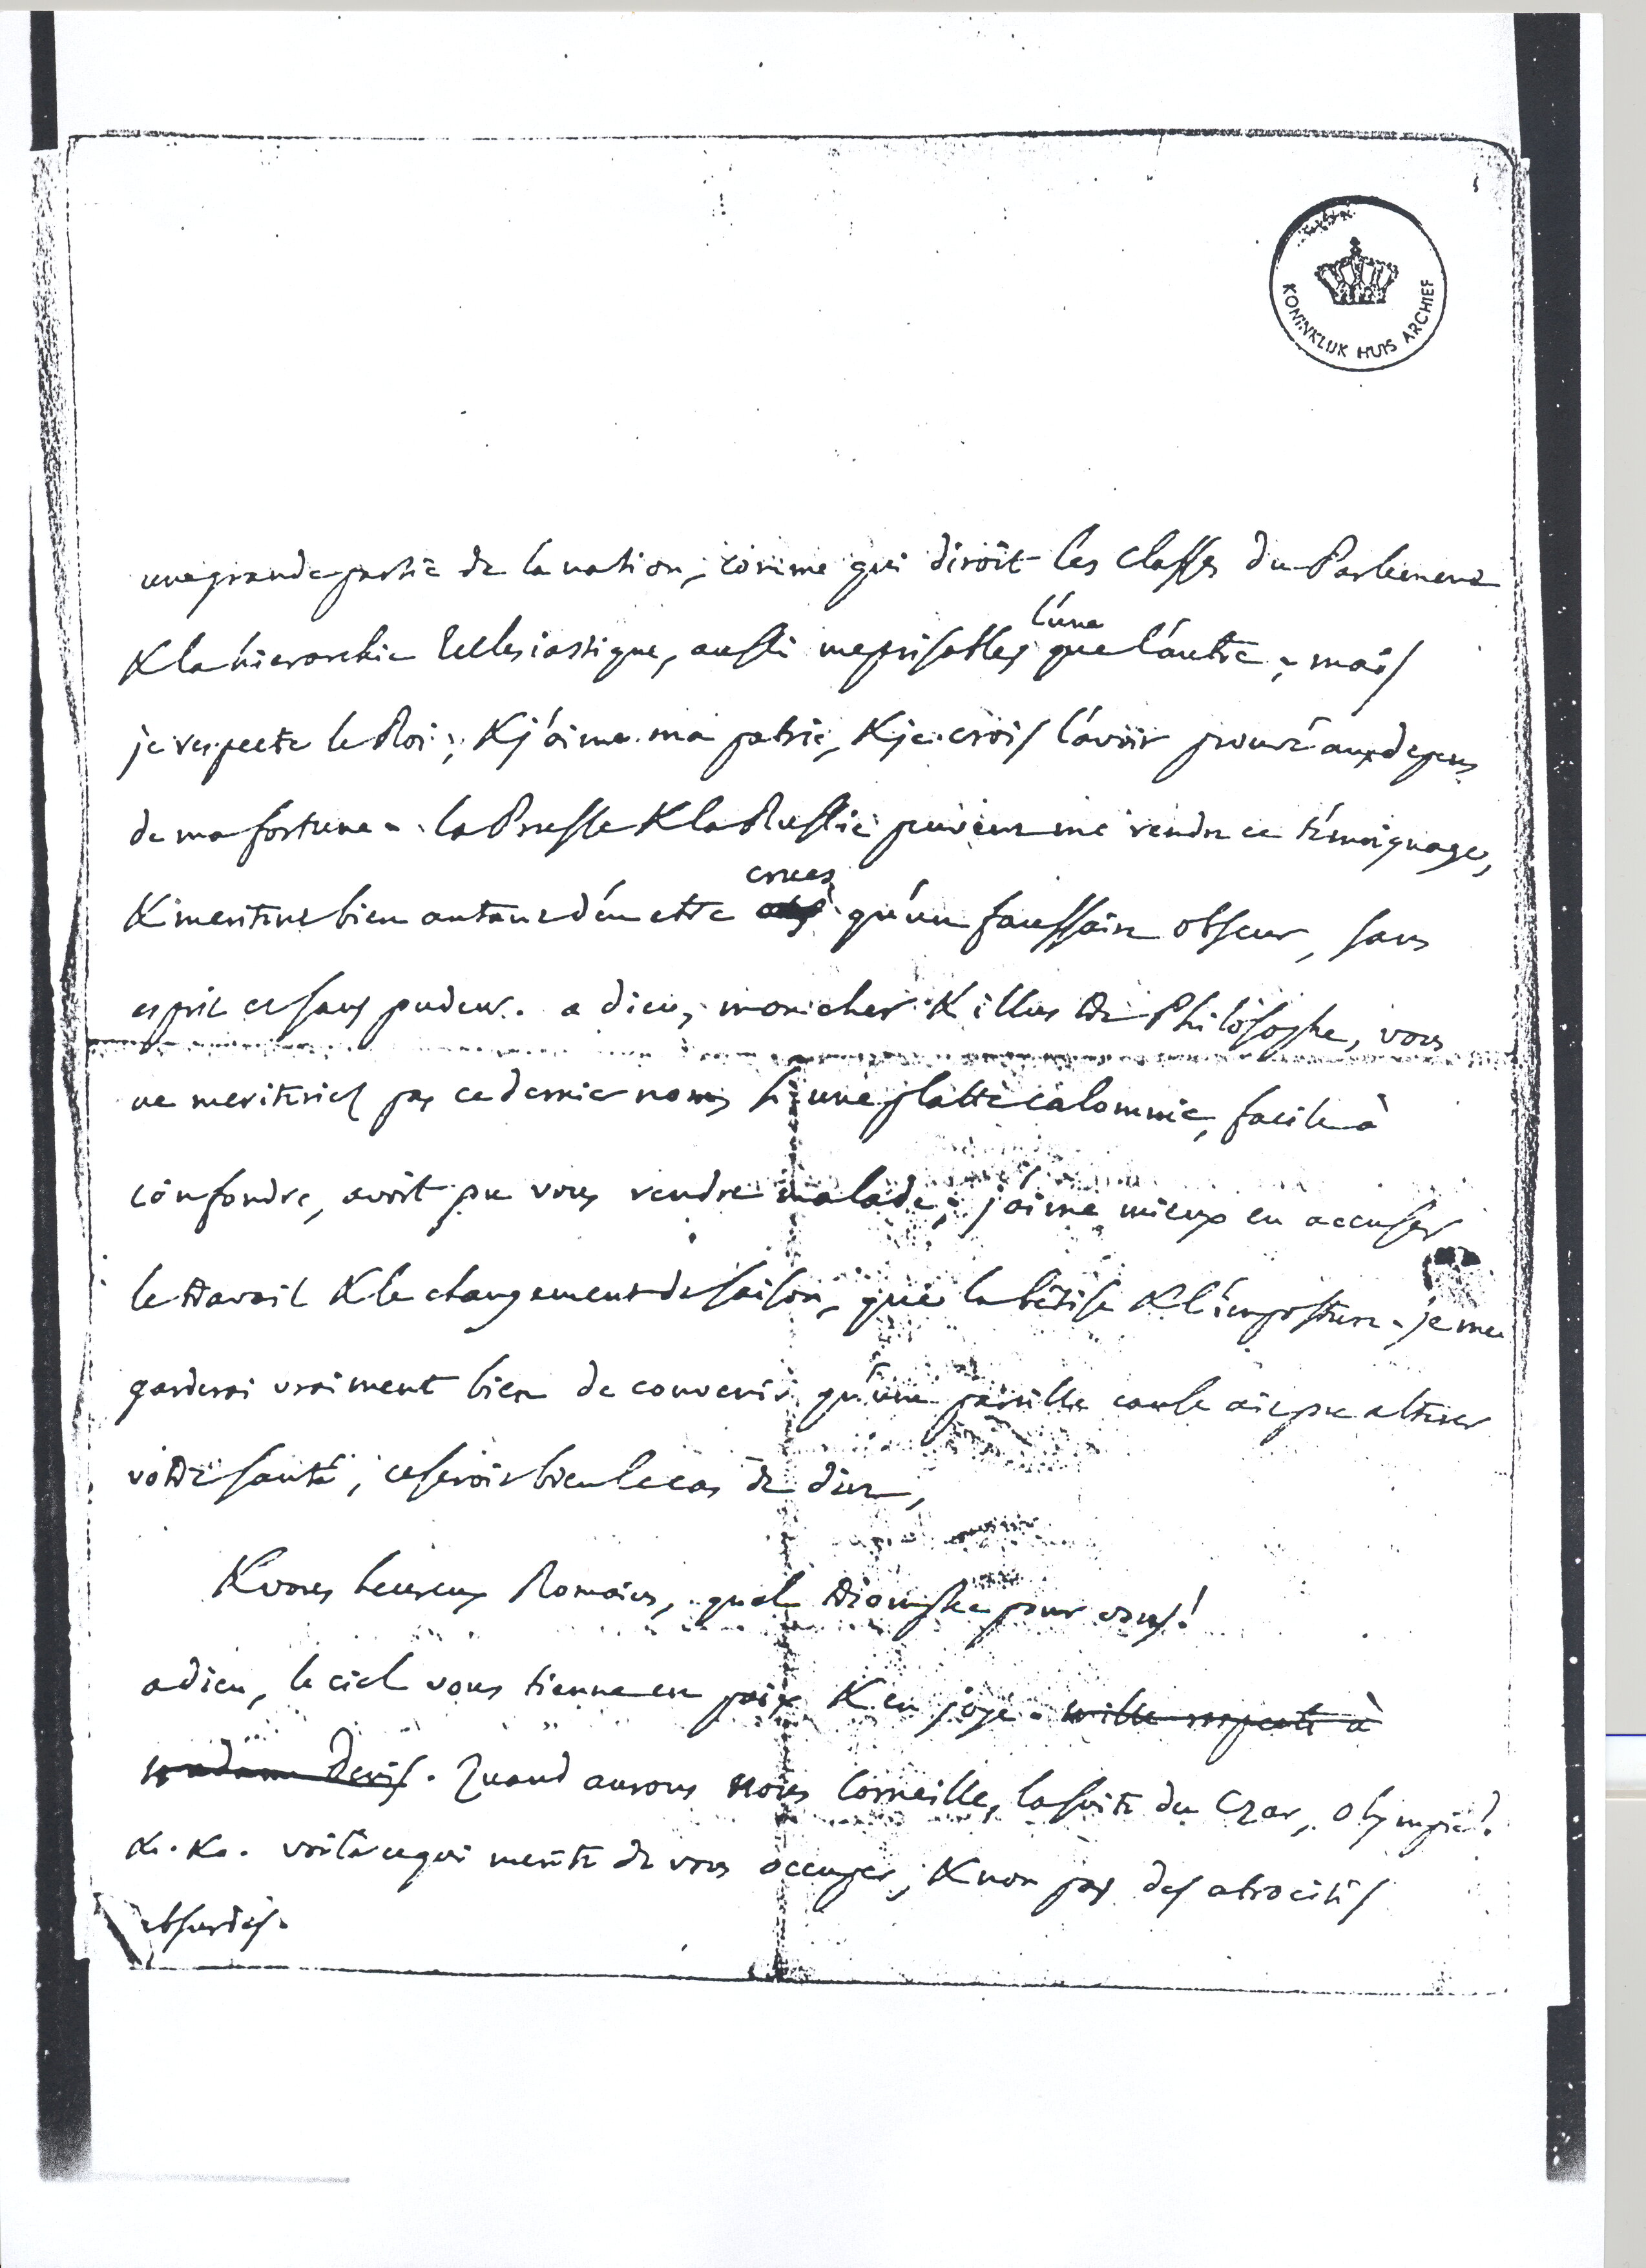 KONINKLIJK HUIS ARCHIEF
une grande partie de la nation, comme qui diroit les classes du Parlement
& la hierarchie Ecclesiastique, aussi meprisables l'une que l'autre ; mais
je respecte le Roi ; & j'aime ma patrie, & je crois l'avoir prouvé aux depens
de ma fortune. la Prusse & la Russie peuvent me rendre ce témoignage,
& meritent bien autant d'en etre crues qu'un faussaire obscur, sans
esprit et sans pudeur. adieu, mon cher & illustre Philosophe, vous
ne meriteriez pas ce dernier nom si une platte calomnie, facile à
confondre, avoit pu vous rendre malade ; j'aime mieux en accuser
le travail & le changement de saison, que la bétise & l'imposture. je me
garderai vraiment bien de convenir qu'une pareille cause ait pu alterer
votre santé ; ce seroit bien le cas de dire,
& vous heureux Romains, quel triomphe pour vous !
adieu, le ciel vous tienne en paix & en joye. mille respects à
madame Denis. Quand aurons nous Corneille, la suite du Czar, Olympie ?
&c. &c. voilà ce qui merite de vous occuper, & non pas des atrocités
absurdes.